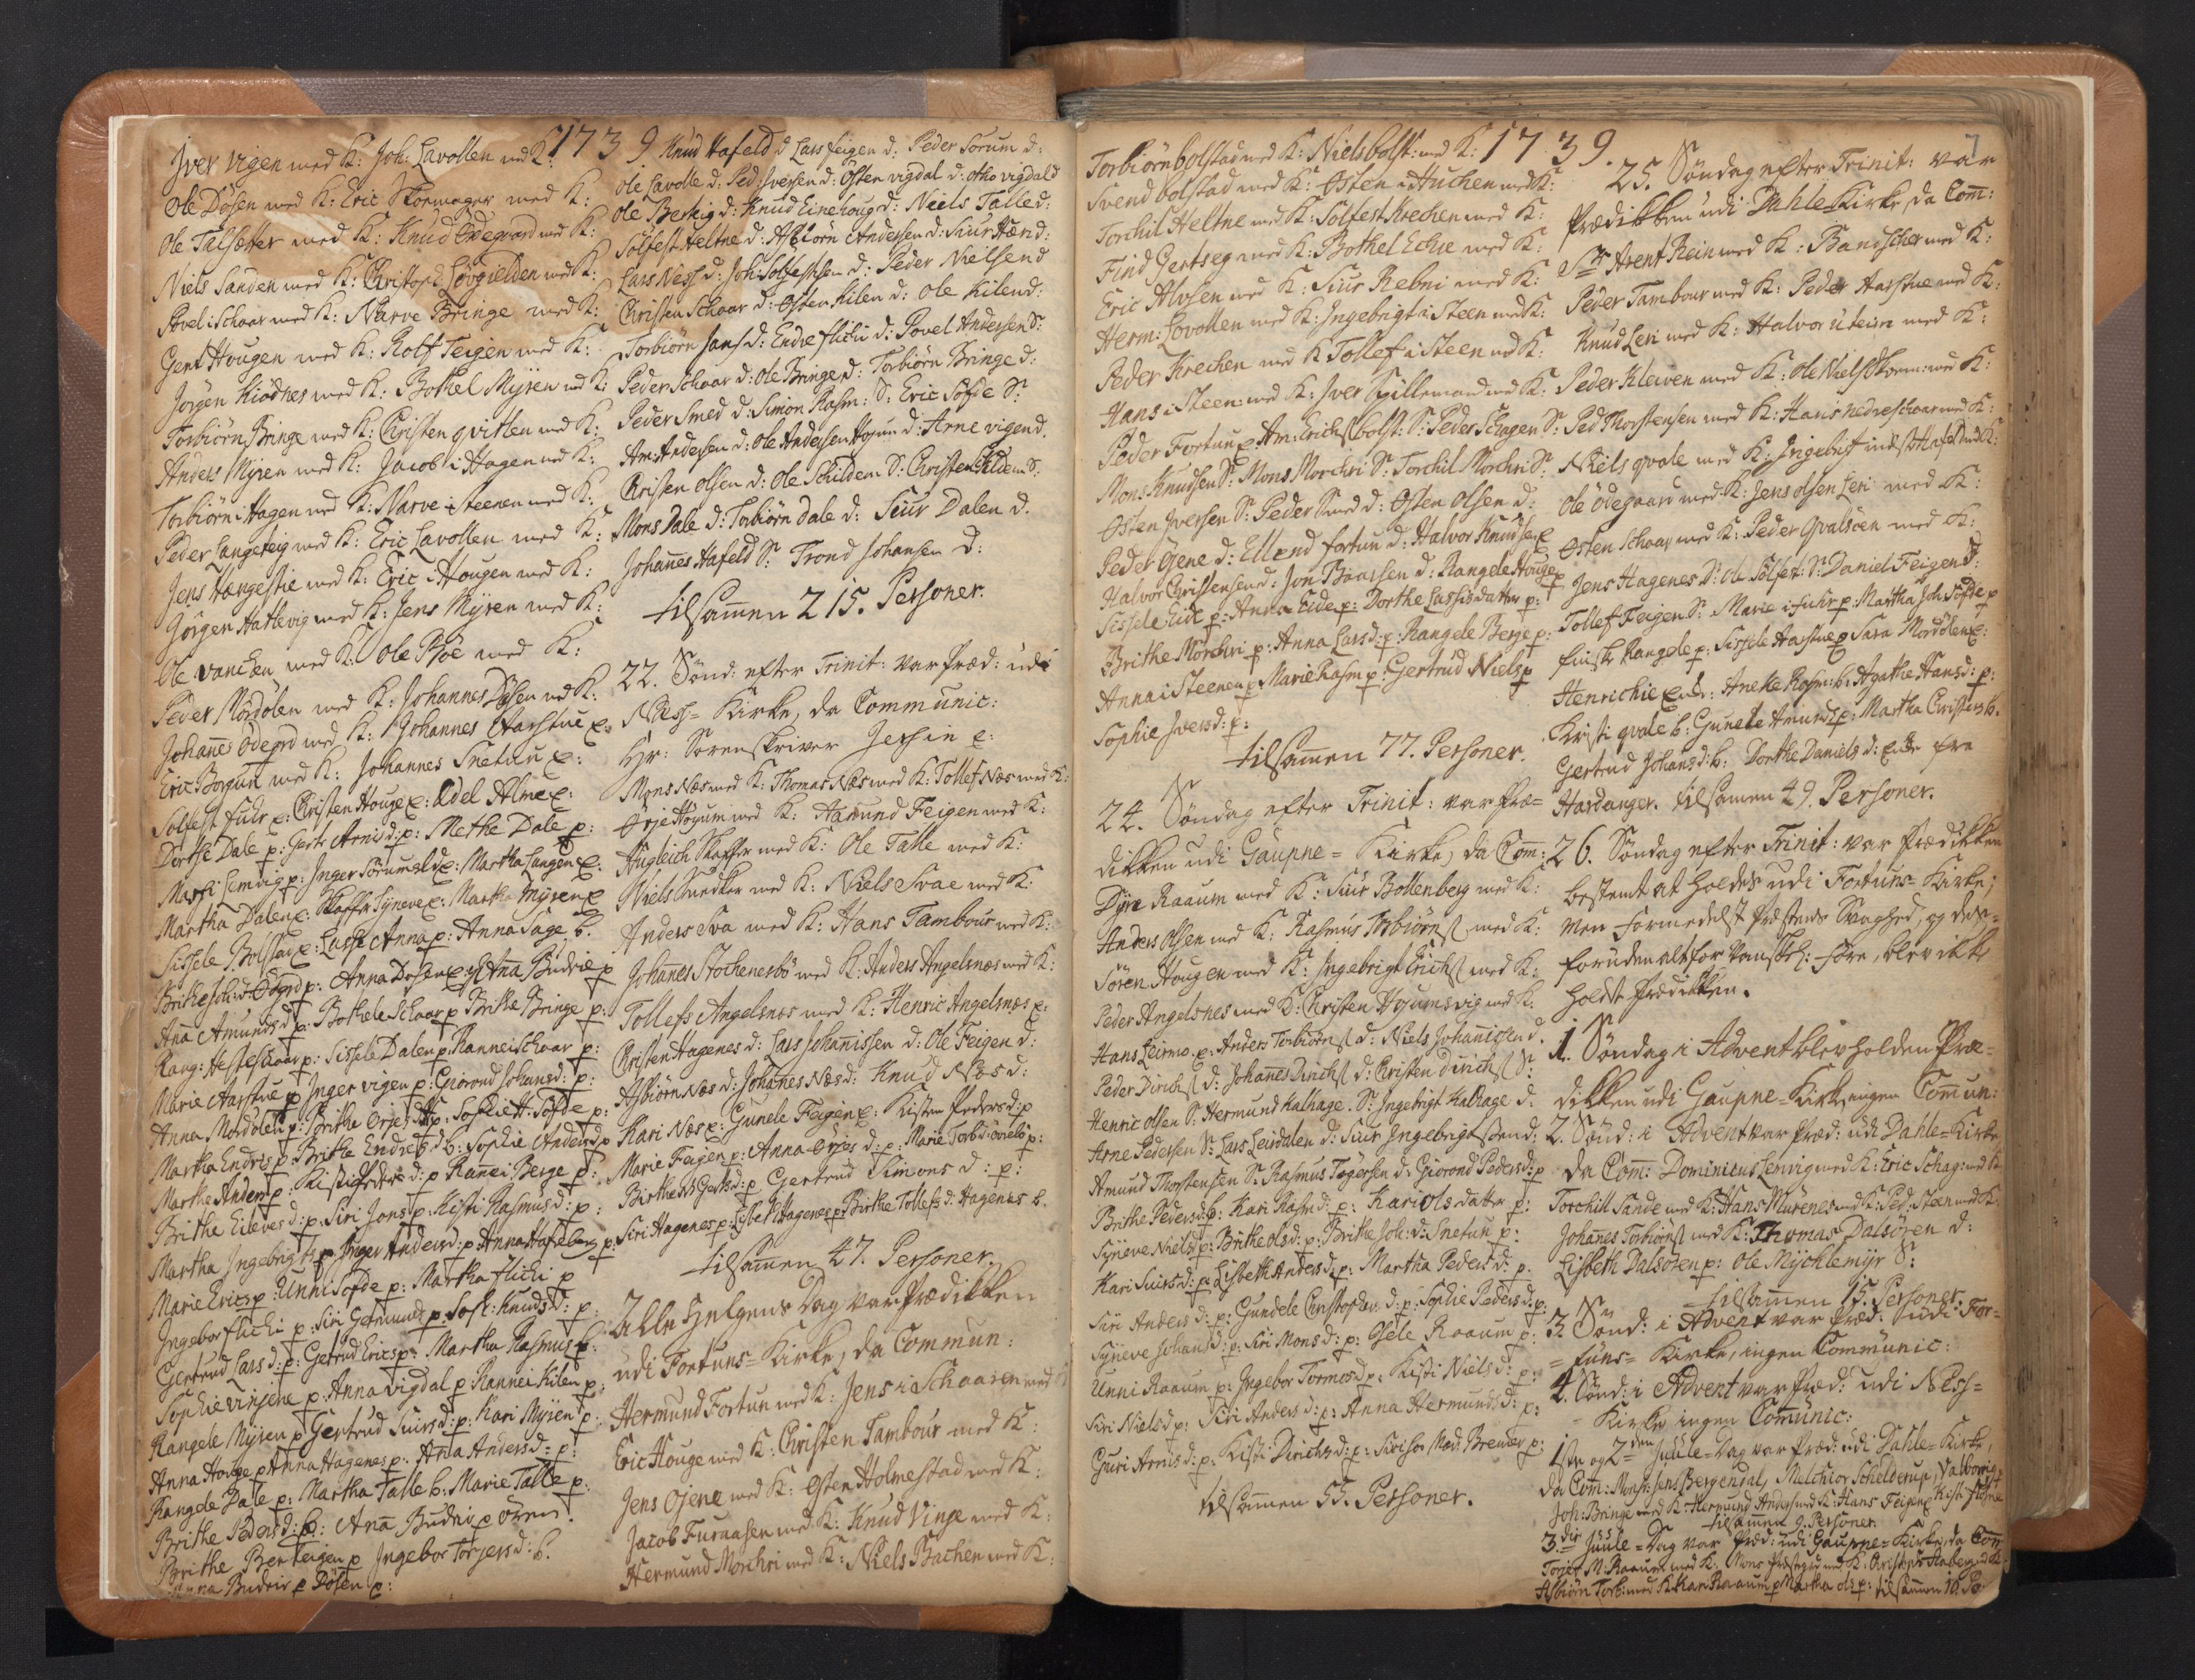 1739.
Iver Vigen med K: Joh: Lavollen med K:
Ole Døsen med K: Eric Skomager med K:
Ole Talsætter med K: Knud Ødegaard med K:
Niels Sanden med K: Christoph Løvgielden med K:
Povel i Schaar med K: Narve Bringe med K:
Gert Hougen med K: Rolf Teigen med K:
Jørgen Kiødnes med K: Bothel Myren med K:
Torbiørn Bringe med K: Christen qvitlen med K:
Anders Myren med K: Jacob i Hagen med K:
Torbiørn i Hagen med K: Narve i Steenen med K:
Peder Langeteig med K: Eric Lavollen med K:
Jens Hængestie med K: Eric i Hougen med K:
Jørgen Hatlevig med K: Jens Myren med K:
Ole Vanchen med K: Ole Bøe med K:
Peder Mordølen med K: Johannes Døsen med K:
Johannes Ødegrd med K: Johannes Aarstue e.
Eric Borgun med K: Johannes Snetun e:
Solfest fuhr e: Christen Houge e: Adel Alme e:
Dorthe Dale p: Gertr Arnis d: p: Methe Dale p:
Marti Lemvig p: Inger Sørum e: Martha Langen e:
Martha Dalen e: Skaffer Synneve e: Martha Myren e
Sissele Bolstad e: Lasse Anna p: Anna Sage b.
Brithe Joh: d: Ødegrd p: Anna Døsen e: Anna Budeie p
Anna Amunds d p: Bothele Schaar p Brithe Bringe p:
Rang: Hesteschaar p: Sissele Dalen p: Rannei Schaar p:
Marie Aarstue p Inger Vigen p: Giørond Johans d: p:
Anna Mordølen p: Brithe Ørjes d p: Sophie H: Søfde p:
Martha Endres p Brithe Endres d b: Sophie Anders d p
Marthe Anders p: Kisti Peders d: p Rannei Berge p:
Brithe Eileves d: p: Siri Jons p: Kisti Rasmus d: p:
Martha Ingebrigts p Inger Anders d: p Anna Hafeberg p:
Marie Erics p: Unni Søfde p: Martha flichi p
Ingebor flichi p: Siri Germunds p: Soph: Knuds d: p:
Gertrud Lars d: p: Gertrud Erics p: Martha Rasmus b:
Sophie Vinjene p: Anna Vigdal p Rannei Kilen p:
Rangele Myren p Gertrud Siurs d: p: Kari Myren p:
Anna Houge p Anna Hagenes p: Anna Anders d: p:
Rangele Dale p: Martha Talle b: Marie Talle p:
Brithe Peders d: b: Anna Budeie p Øren.
Brithe Berteigen p Ingebor Torjers d: b.
Anna Budeie p Døsen p:
Knud Hafeld d Lars feigen d: Peder Sorum d:
Ole Lavolle d: Ped: Iversen d: Østen Vigdal d: Otho Vigdal d
Ole Berteig d: Knud Einehoug d: Niels Talle d:
Solfest Heltne d: Asbiørn Andersen d: Siur Hæn d:
Lars Ness d: Joh: Solfestsen d: Peder Nielsen d
Christen Schaar d: Østen Kilen d: Ole Kilen d:
Torbiørn Jons d: Endre flichi d: Povel Andersen S:
Peder Schaar d: Ole Bringe d: Torbiørn Bringe d:
Peder Smed d: Simon Rasm: S: Eric Søfde S:
Am: Andersen d: Ole Andersen Hojum d: Arne Vigen d.
Christen Olsen d: Ole Schildem S: Christen Kildem S.
Mons Dale d: Torbiørn Dale d: Siur Dalen d.
Johannes Hafeld S: Trond Johansen d:
tilsammen 215. Personer.
22. Sønd: efter Trinit: var Præd: udi
Næss = Kirke, da Communic:
Hr: Sorenskriver Jessin e:
Mons Næs med K: Thomas Næs med K: Tollef Næs med K:
Ørje Høyum med K: Hamund Feigen med K:
Hugleich Skaffer med K: Ole Talle med K:
Niels Snedker med K: Niels Svae med K:
Anders Sva med K: Hans Tambour med K:
Johannes Stochenesbø med K: Anders Angelsnæs med K:
Tollefs Angelsnæs med K: Henric Angelsnæs e:
Christen Hagenes d: Lars Johannissen d: Ole Feigen d:
Asbiørn Næs d: Johannes Næs d: Knud Næs d:
Kari Næs e: Gunele Feigen e: Kisten Peders d: p
Marie Feigen p: Anna Ørjes d: p: Marie Torb: p:
Birthe Gerts d: p Gertrud Simons d: p:
Siri Hagenes p: Lisbeth Hagenes p: Birthe Tollefs d: Hagenes b.
tilsammen 47. Personer.
Alle Helgens Dag var Prædikken
udi Fortuns = Kirke, da Commun:
Hermund Fortun med K: Jens i Schaaren med K
Eric Houge med K: Christen Tambour med K:
Jens Øjene med K: Østen Holmestad med K:
Jacob Furaasen med K: Knud Vinje med K:
Hermund Morchri med K: Niels Bachen med K:
1739.
7
Torbiørn bolstad med K: Niels bolst: med K:
Svend bolstad med K: Østen i Huchen med K:
Torchil Heltne med K: Solfest Krechen med K:
Find Gertseg med K: Bothel Echre med K:
Eric Alvsen med K: Siur Rebni med K:
Herm: Lovollen med K: Ingebrigt i Steen med K:
Peder Krechen med K Tollef i Steen med K:
Hans i Steen med K: Iver Spillemand med K:
Peder Fortun e Am: Erichs bolst: S: Peder Schagen S:
Mons Knudsen S: Mons Morchri S: Torchil Morchri S:
Østen Iversen S: Peder Smed d: Østen Olsen d:
Peder Øgene d: Ellend fortun d: Halvor Knudsen e
Halvor Christensen d: Jon Baarsen d: Rangele Houge p
Sissele Eide p: Anna Eide p: Dorthe Lassisdatter p:
Brithe Morchri p: Anna Lars d: p: Rangele Berge p:
Anna i Steenen p: Marie Rasm p: Gertrud Niels p
Sophie Ivers d: p:
tilsammen 77. Personer.
24. Søndag efter Trinit: var Præ=
dikken udi Gaupne = Kirke, da Com:
Dyre Raaum med K: Siur Bollenberg med K:
Anders Olsen med K: Rasmus Torbiørns med K:
Søren Hougen med K: Ingebrigt Erichs med K:
Peder Angelsnes med K: Christen Høyumsvig med K.
Hans Leirmo e: Anders Torbiørns d: Niels Johannissen d.
Peder Dirichs d: Johannes Dirichs d: Christen Dirichs S:
Henric Olsen S: Hermund Kalhage S: Ingebrigt Kalhage d:
Arne Pedersen S: Lars Leirdalen d: Siur Ingebrigtssen d:
Amund Thorstensen S: Rasmus Tøgersen d: Giørond Peders d: p
Brithe Peders d: b: Kari Rasm d: p: Kari Olsdatter p:
Synneve Niels d p: Brithe Ols d: p: Brithe Joh: d: Snetun p:
Kari Siurs d: p: Lisbeth Anders d p: Martha Peders d: p:
Siri Anders d: p: Gundele Christophers d: p: Sophie Peders d: p:
Synneve Johans d: p: Siri Mons d: p: Giele Raaum p:
Unni Raaum p: Ingebor Tormos d p: Kisti Niels d: p:
Siri Niels d p: Siri Anders d: p: Anna Hermunds d: p:
Guri Arnes d: p: Kisti Dirichs d: p: Mad: Bremer p:
tilsammen 55. Personer.
25. Søndag efter Trinit: var
Prædikken udi Dahle Kirke, da Com:
Sr Arent Rein med K: Bandscher med K:
Peder Tambour med K: Peder Aarstue med K:
Knud Leri med K: Halvor med K:
Peder Kleiven med K: Ole Niels Skom: med K:
Ped Thorstensen med K: Hans Nedreschaar med K:
Niels qvale med K: Ingebrit Hafeld med K:
Ole Ødegaard med K: Jens Olsen Leri med K:
Østen Schaar med K: Peder Qvalsøen med K:
Jens Hagenes S: Ole Solfest: S: Daniel Feigen d:
Tollef Feigen S: Marie i fuhr p: Martha Joh: Søfde p
finsk Rangele p: Sissele Aarstue p Sara Mordølen e:
Henrichie Enke: Aneke Rasm: b: Agathe Hans d: p:
Kristi qvale b: Gunele Amunds p: Martha Christens b.
Gertrud Johans d: b: Dorthe Daniels d: Enke fra
Hardanger. tilsamen 49. Personer.
26. Søndag efter Trinit: var Prædikken
bestemt at holdes udi Fortuns = Kirke;
men formedelst Præstens Svaghed, og des=
foruden alt for vanskel: Føre, blev ikke
holdt Prædikken.
1. Søndag i Advent blev holden Præ=
dikken udi Gaupne = Kirke, ingen Comun:
2. Sønd: i Advent var Præd: udi Dahle = Kirke
da Com: Dominicus Lenvig med K: Eric Schag: med K
Torchill Sande med K: Hans Mørenes med K: Ped: Steen med K:
Johannes Torbiørns med K: Thomas Dalsøren d:
Lisbeth Dalsøren p: Ole Mychlemyr S:
tilsammen 15. Personer.
3. Sønd: i Advent var Præd: udi For=
= tuns = Kirke, ingen Communic:
4. Sønd: i Advent var Præd: udi Ness=
= Kirke ingen Comunic:
1ste og 2den Juule = Dag var Præd: udi Dahle = Kirke,
da Com: Mons: Jens Bergendal, Melchior Schelderup,
Joh: Bringe med K: Hermund Anders med K: Hans Feigen e Kisti
tilsammen 9. Personer.
3die Juule = Dag var Præd: udi Gaupne = Kirke; da Com
Torjer N: Raaum med K: Mons med K: Christoph Haberg med K:
Asbiørn Torb: med K: Kari Raaum p Martha Ols p: tilsammen 10. Pe: